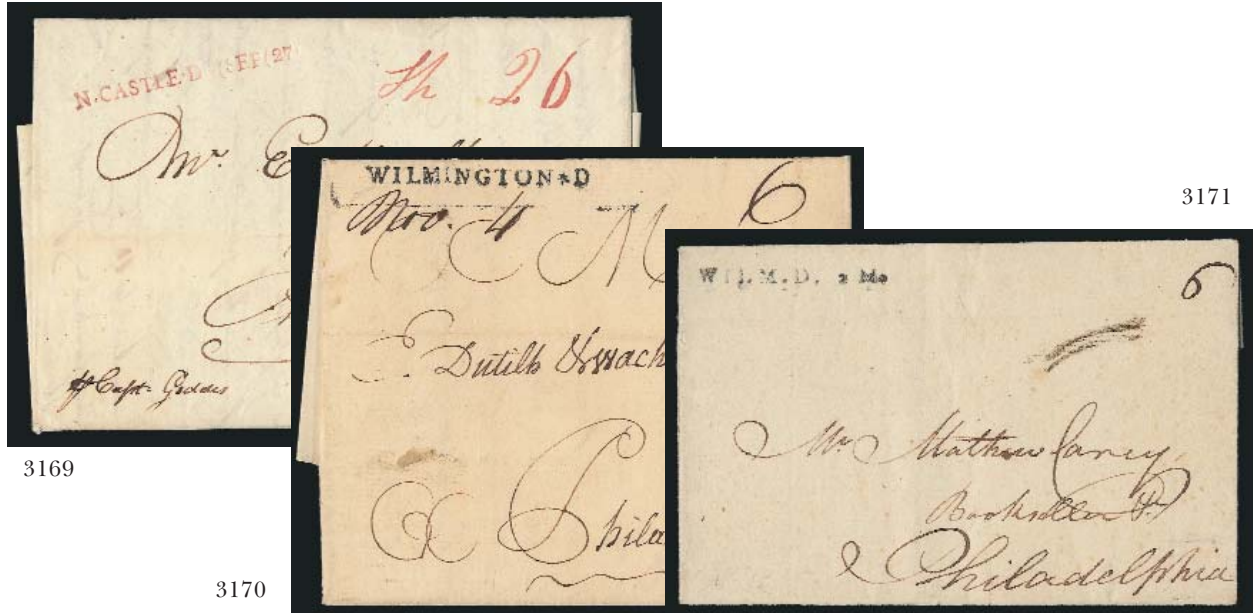 N·CASTLE·D SEP(27
Sh 26
Mr. E
Capt. Geddes
3169
WILMINGTON*D
Nov. 4
6
M
E. Dutilh & Wach
Phila
3170
3171
WILM.D. 2 Mo
6
Mr Mathew Carey
Bookseller
Philadelphia